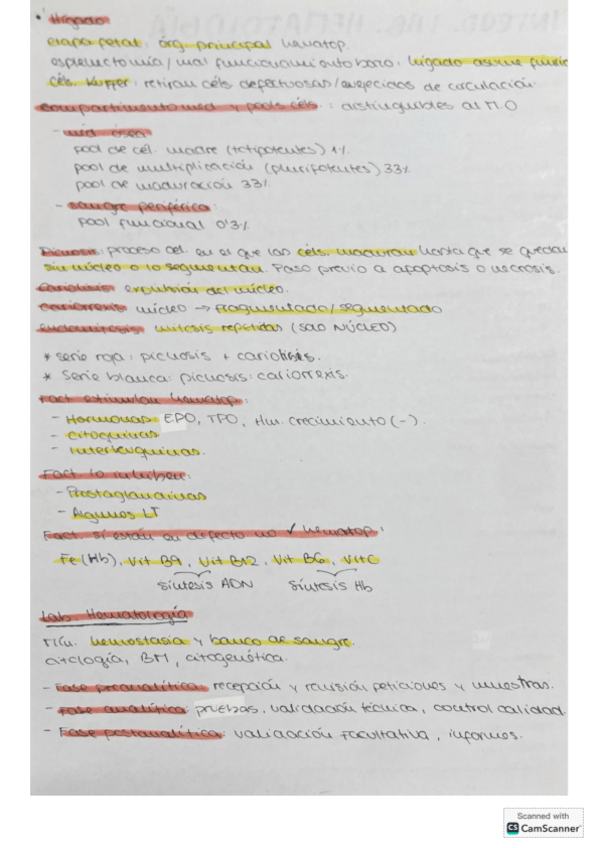 • Hígado
etapa fetal: órg. principal hematop.
esplenectomía / mal funcionamiento bazo: hígado asume func
céls. Kupffer: retiran céls defectuosas/envejecidas de circulación.
Compartimento med y pools céls.: distinguibles al M.O
- méd. ósea:
pool de cél. madre (totipotentes) 1%
pool de multiplicación (pluripotentes) 33%
pool de maduración 33%
- sangre periférica:
pool funcional 0'3%
Picnosis: proceso cel. en el que las céls. maduran hasta que se quedan
sin núcleo o lo segmentan. Paso previo a apoptosis o necrosis.
Cariolisis: expulsión del núcleo.
Cariorrexis: núcleo → fragmentado/segmentado
endomitosis: mitosis repetidas (solo NÚCLEO)
* serie roja: picnosis + cariolisis.
* Serie blanca: picnosis: cariorrexis.
Fact estimulan hematop:
- Hormonas: EPO, TPO, Hm. crecimiento (-).
- Citoquinas
- Interleuquinas.
Fact lo inhiben:
- Prostaglandinas
- Algunos LT
Fact. si están en defecto no ✓ hematop:
Fe (Hb), Vit B9, Vit B12, Vit B6, Vit C
síntesis ADN síntesis Hb
Lab. Hematología
hemostasia y banco de sangre.
citología, BM, citogenética.
- Fase preanalítica: recepción y revisión peticiones y muestras.
- Fase analítica: pruebas, validación técnica, control calidad.
- Fase postanalítica: validación facultativa, informes.
Scanned with
CS CamScanner